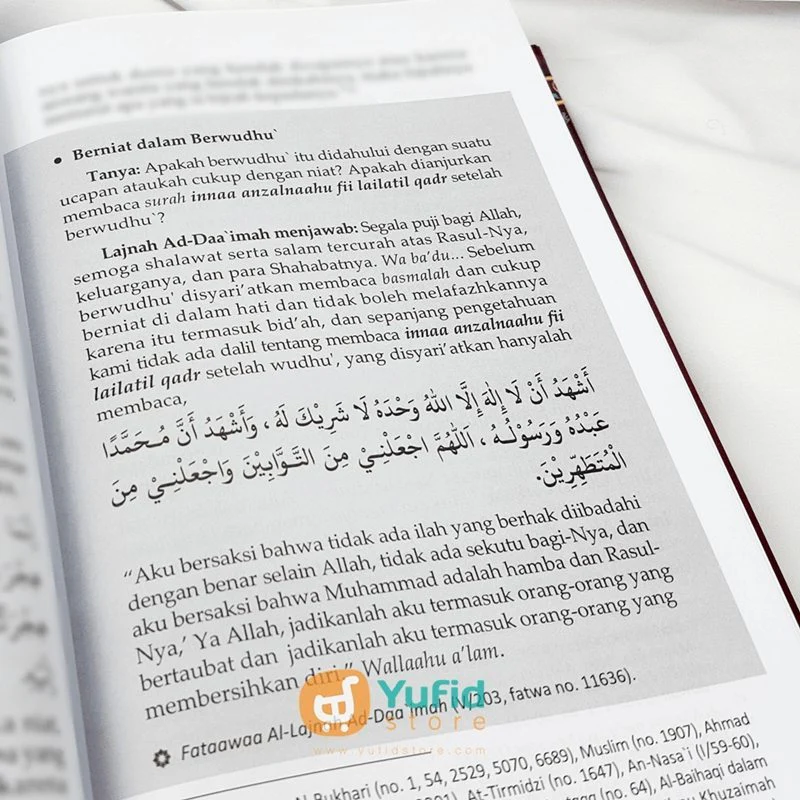 • Berniat dalam Berwudhu`
Tanya: Apakah berwudhu` itu didahului dengan suatu
ucapan ataukah cukup dengan niat? Apakah dianjurkan
membaca surah innaa anzalnaahu fii lailatil qadr setelah
berwudhu`?
Lajnah Ad-Daa`imah menjawab: Segala puji bagi Allah,
semoga shalawat serta salam tercurah atas Rasul-Nya,
keluarganya, dan para Shahabatnya. Wa ba’du... Sebelum
berwudhu' disyari’atkan membaca basmalah dan cukup
berniat di dalam hati dan tidak boleh melafazhkannya
karena itu termasuk bid’ah, dan sepanjang pengetahuan
kami tidak ada dalil tentang membaca innaa anzalnaahu fii
lailatil qadr setelah wudhu', yang disyari’atkan hanyalah
membaca,
أَشْهَدُ أَنْ لَا إِلٰهَ إِلَّا اللهُ وَحْدَهُ لَا شَرِيْكَ لَهُ ، وَأَشْهَدُ أَنَّ مُحَمَّدًا
عَبْدُهُ وَرَسُوْلُهُ ، اَللّٰهُمَّ اجْعَلْنِيْ مِنَ التَّوَّابِيْنَ وَاجْعَلْنِيْ مِنَ
الْمُتَطَهِّرِيْنَ.
“Aku bersaksi bahwa tidak ada ilah yang berhak diibadahi
dengan benar selain Allah, tidak ada sekutu bagi-Nya, dan
aku bersaksi bahwa Muhammad adalah hamba dan Rasul-
Nya,’ Ya Allah, jadikanlah aku termasuk orang-orang yang
bertaubat dan jadikanlah aku termasuk orang-orang yang
membersihkan diri.” Wallaahu a’lam.
Yufid
store
www.yufidstore.com
Fataawaa Al-Lajnah Ad-Daa`imah (V/203, fatwa no. 11636).
Al-Bukhari (no. 1, 54, 2529, 5070, 6689), Muslim (no. 1907), Ahmad
At-Tirmidzi (no. 1647), An-Nasa`i (I/59-60),
(no. 64), Al-Baihaqi dalam
Khuzaimah